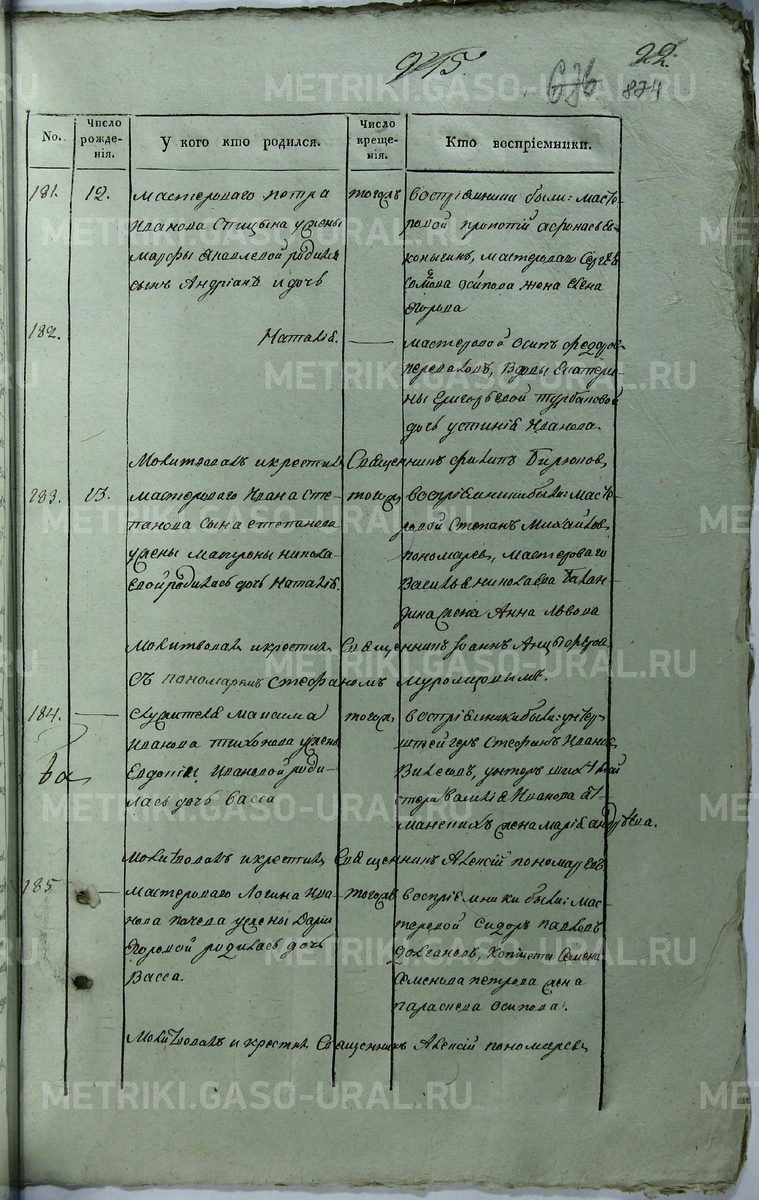 215.
676
22.
874
No.
Число рожде-нія.
У кого кто родился.
Число креще-нія.
Кто воспріемники.
181.
12.
мастероваго петра
Иванова Спицына у жены
Марфы Яковлевой родился
сынъ Андріанъ и дочь
тогожъ
воспріемники были: масте-
ровой прокопій афонасьевъ
мастероваго Сергея
осипова жена Елена
Егорова
182.
Наталія.
мастеровой осипъ федоровъ
вдовы Екатери-
ны Григорьевой Турбановой
дочь устинія Иванова.
Молитвовалъ и крестилъ Священникъ филипъ Бирюковъ
183.
13.
мастероваго Ивана Сте-
панова сына степанова
у жены Матроны никола-
евой родилась дочь Наталія.
тогожъ
воспріемники были: масте-
ровой Степанъ Михайловъ
пономаревъ, мастероваго
Василья николаева Балан-
дина жена Анна львова
Молитвовалъ и крестилъ Священникъ Іоаннъ
Съ пономаремъ Стефаномъ
184.
служителя Максима
Иванова тихонова у жены
Евдокіи Ивановой роди-
лась дочь васса
тогожъ
воспріемники были: унтеръ
штейгеръ Стефанъ Ивановъ
унтеръ шихтмей
стера Василія Иванова
жена марія андреева.
Молитвовалъ и крестилъ Священникъ Алексій пономаревъ
185
мастероваго Логина Ива-
нова у жены Дарьи
Егоровой родилась дочь
Васса.
тогожъ
воспріемники были: мас-
теровой Сидоръ павловъ
долгановъ, Копіиста Семена
Семенова петрова жена
параскева осипова.
Молитвовалъ и крестилъ Священникъ Алексій пономаревъ
METRIKI.GASO-URAL.RU